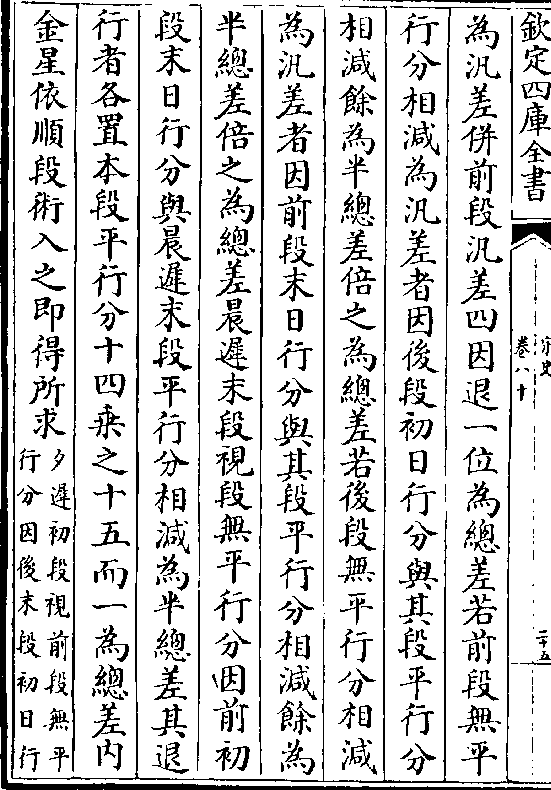 欽定四庫全書
為汎差併前段汎差四因退一位為總差若前段無平
行分相減為汎差者因後段初日行分與其段平行分
相減餘為半總差倍之為總差若後段無平行分相減
為汎差者因前段末日行分與其段平行分相減餘為
半總差倍之為總差晨遲末段視段無平行分因前初
段末日行分與晨遲末段平行分相減為半總差其退
行者各置本段平行分十四乗之十五而一為總差内
金星依順段術入之即得所求夕遲初段視前段無平
行分因後末段初日行
卷八十
二十五